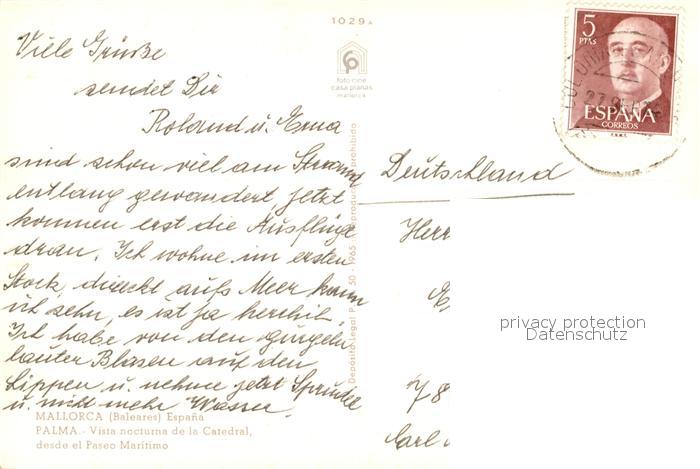 1029 A
Viele Grüße
sendet Dir
Roland u. Erna
sind schon viel am Strand
entlang gewandert, jetzt
kommen erst die Ausflüge
dran. Ich wohne im ersten
Stock, direkt aufs Meer kann
ich sehn, es ist ja herrlich.
Ich habe von den gurgeln
lauter Blasen auf den
Lippen u. nehme jetzt Sprudel
u. nicht mehr Wasser.
MALLORCA (Baleares) España
PALMA.- Vista nocturna de la Catedral,
desde el Paseo Marítimo
foto cine
casa planas
mallorca
Depósito Legal P. 50 - 1965 prohibido
5
PTAS
ESPAÑA
CORREOS
Deutschland
Herr
78
Carl
privacy protection
Datenschutz